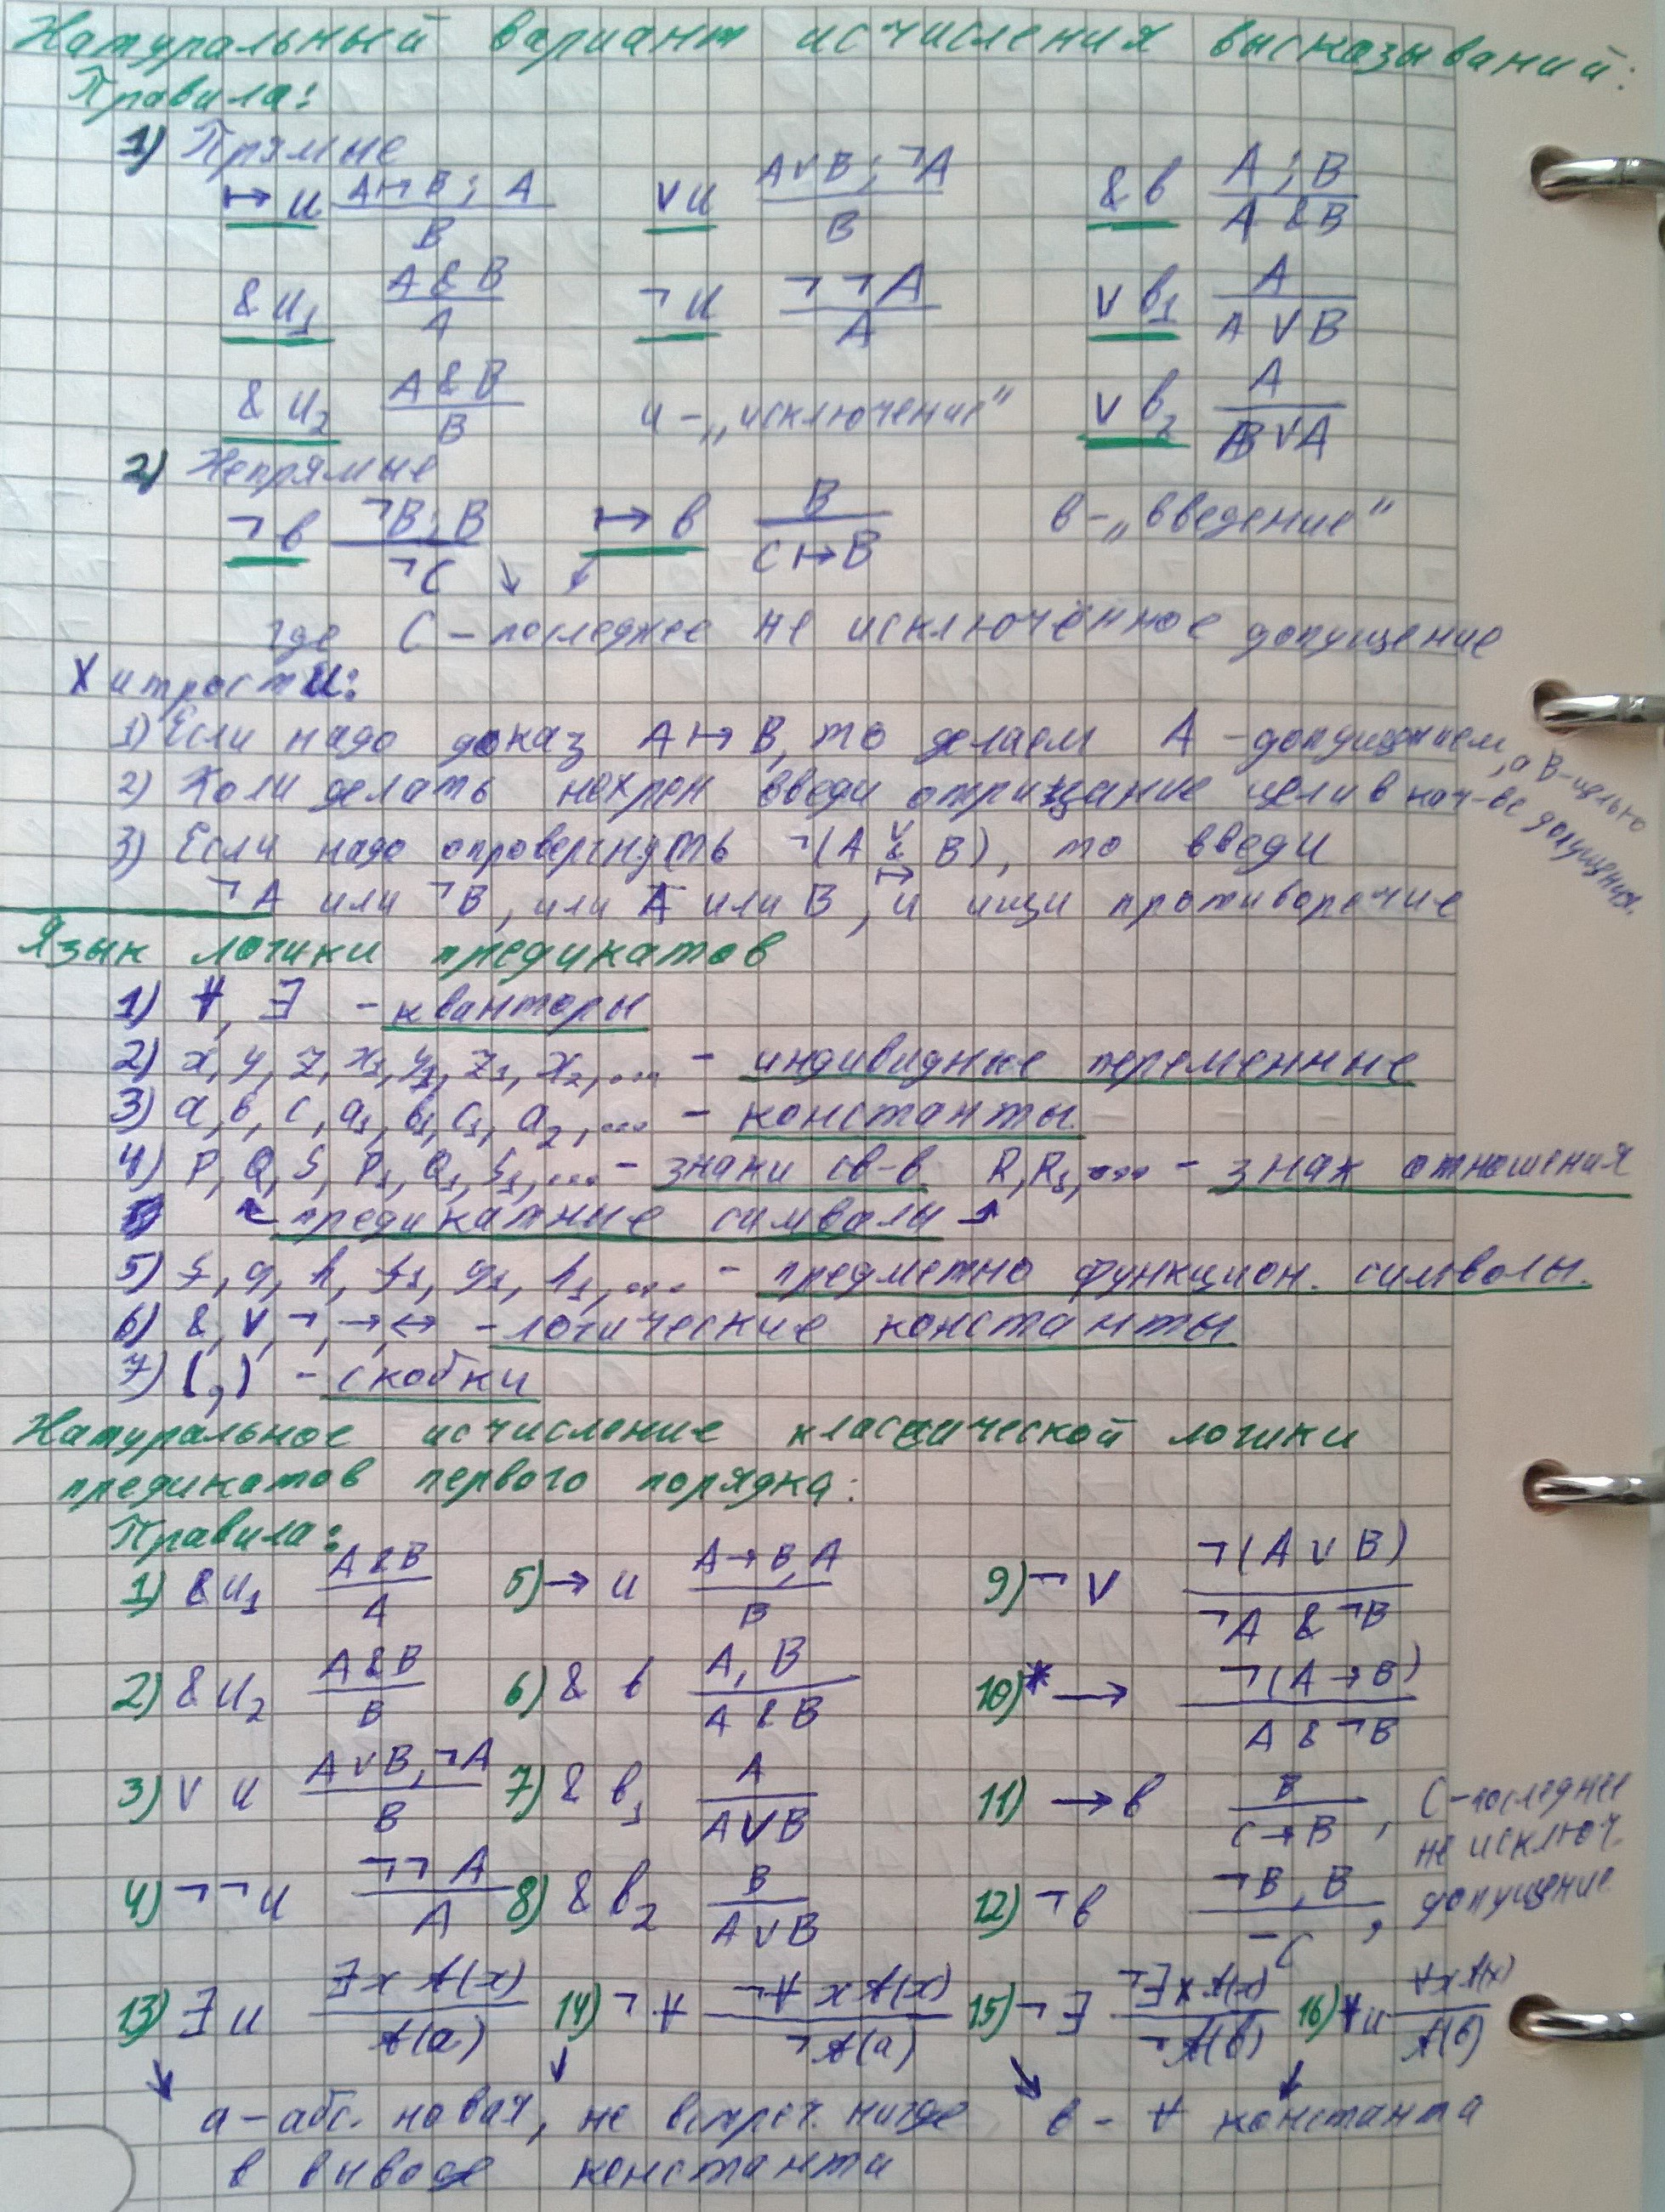 Натуральный вариант исчисления высказываний:
Правила:
1) Прямые
↦ и A ↦ B ; A / B    ∨ и A ∨ B ; ¬A / B    & в A ; B / A & B
& и₁ A & B / A    ¬ и ¬¬A / A    ∨ в₁ A / A ∨ B
& и₂ A & B / B    и – „исключение"    ∨ в₂ A / B ∨ A
2) Непрямые
¬ в ¬B ; B / ¬C    ↦ в B / C ↦ B    в – „введение"
где C – последнее не исключённое допущение
Хитрости:
1) Если надо доказ A ↦ B, то делаем A – допущением, а B – целью
2) Коли делать нехрен введи отрицание цели в кач-ве допущения.
3) Если надо опровергнуть ¬(A ∨ & ↦ B), то введи
¬A или ¬B, или A или B, и ищи противоречие
Язык логики предикатов
1) ∀, ∃ – кванторы
2) x, y, z, x₁, y₁, z₁, x₂, ... – индивидные переменные
3) a, b, c, a₁, b₁, c₁, a₂, ... – константы
4) P, Q, S, P₁, Q₁, S₁, ... – знаки св-в R, R₁, ... – знак отношения
↖ предикатные символы ↗
5) f, g, h, f₁, g₁, h₁, ... – предметно функцион. символы.
6) &, ∨, ¬, →, ↔ – логические константы
7) (,) – скобки
Натуральное исчисление классической логики
предикатов первого порядка:
Правила:
1) & и₁ A & B / A    5) → и A → B, A / B    9) ¬ ∨ ¬(A ∨ B) / ¬A & ¬B
2) & и₂ A & B / B    6) & в A, B / A & B    10) * → ¬(A → B) / A & ¬B
3) ∨ и A ∨ B, ¬A / B    7) & в₁ A / A ∨ B    11) → в B / C → B , C – последнее не исключ. допущение
4) ¬¬и ¬¬A / A    8) & в₂ B / A ∨ B    12) ¬ в ¬B, B / ¬C ,
13) ∃ и ∃x A(x) / A(a)    14) ¬ ∀ ¬∀x A(x) / ¬A(a)    15) ¬ ∃ ¬∃x A(x) / ¬A(b)    16) ∀ и ∀x A(x) / A(b)
a – абс. новая, не встреч. нигде    b – ∀ константа
в выводе константа